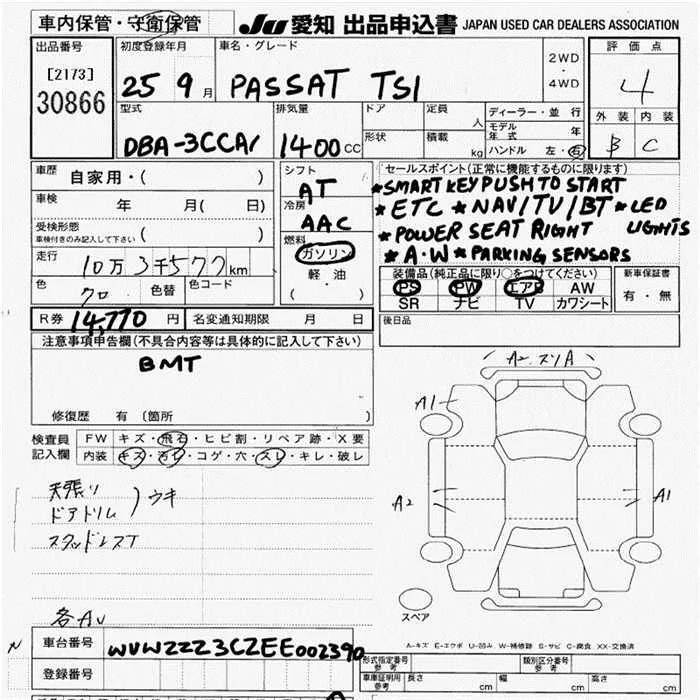 車内保管・守衛保管
JU 愛知 出品申込書 JAPAN USED CAR DEALERS ASSOCIATION
出品番号
[2173]
30866
初度登録年月
25 9 月
車名・グレード
PASSAT TSI
2WD
・
4WD
評価点
4
外装 内装
B C
型式
DBA-3CCAX
排気量
1400 CC
ドア
形状
定員 人
積載 kg
ディーラー・並行
モデル年式 年
ハンドル 左・右
車歴 自家用・( )
車検 年 月( 日)
受検形態
車検付きのみ記入して下さい ( )
走行 10万3千577km
色 クロ 色替 色コード
シフト
AT
冷房
AAC
燃料
ガソリン
軽油
( ・ )
セールスポイント(正常に機能するものに限ります)
*SMART KEY PUSH TO START
*ETC *NAV/TV/BT *LED
*POWER SEAT RIGHT LIGHTS
*A.W *PARKING SENSORS
装備品(純正品に限り○をつけてください)
PS PW エアB AW
SR ナビ TV カワシート
新車保証書
有・無
R券 14,770 円 名変通知期限 月 日
後日品
注意事項申告欄(不具合内容等は具体的に記入して下さい)
BMT
修復歴 有 (箇所 )
検査員
記入欄
FW キズ・飛石・ヒビ割・リペア跡・X要
内装 キズ・汚れ・コゲ・穴・スレ・キレ・破レ
天張り
ドアトリム ) ウキ
スタッドレスT
各AU
A2 スリA
A1
A2
A1
スペア
A-キズ E-エクボ U-凹み W-補修跡 S-サビ C-腐食 XX-交換済
N
車台番号 WVWZZZ3CZEE002390
登録番号
形式指定番号
参考
類別区分番号
参考
車庫証明用
参考
長さ cm 幅 cm 高さ cm